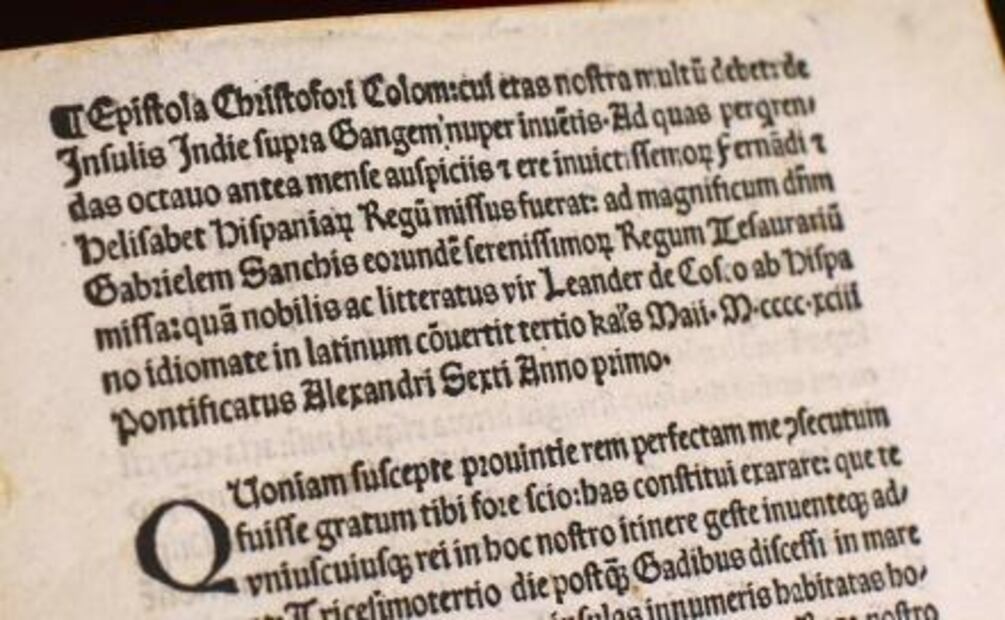 ¶ Epiſtola Chriſtofori Colom: cui etas noſtra multū debet: de
Inſulis Indie ſupra Gangem nuper inuētis. Ad quas perqren-
das octauo antea menſe auſpiciis ⁊ ere inuictiſſemoꝝ Fernādi ⁊
Heliſabet Hiſpaniaꝝ Regū miſſus fuerat: ad magnificum dn̄m
Gabrielem Sanchis eorundē ſereniſſimoꝝ Regum Teſaurariū
miſſa: quā nobilis ac litteratus vir Leander de Coſco ab Hiſpa
no idiomate in latinum cōuertit tertio kal's Maii. M.cccc.xciii
Pontificatus Alexandri Sexti Anno primo.
QUoniam ſuſcepte prouintie rem perfectam me ꝯſecutum
fuiſſe gratum tibi fore ſcio: has conſtitui exarare: que te
vniuſcuiuſqꝫ rei in hoc noſtro itinere geſte inuenteqꝫ ad-
Triceſimotertio die poſtqꝫ̄ Gadibus diſceſſi in mare
inſulas innumeris habitatas ho-
noſtro